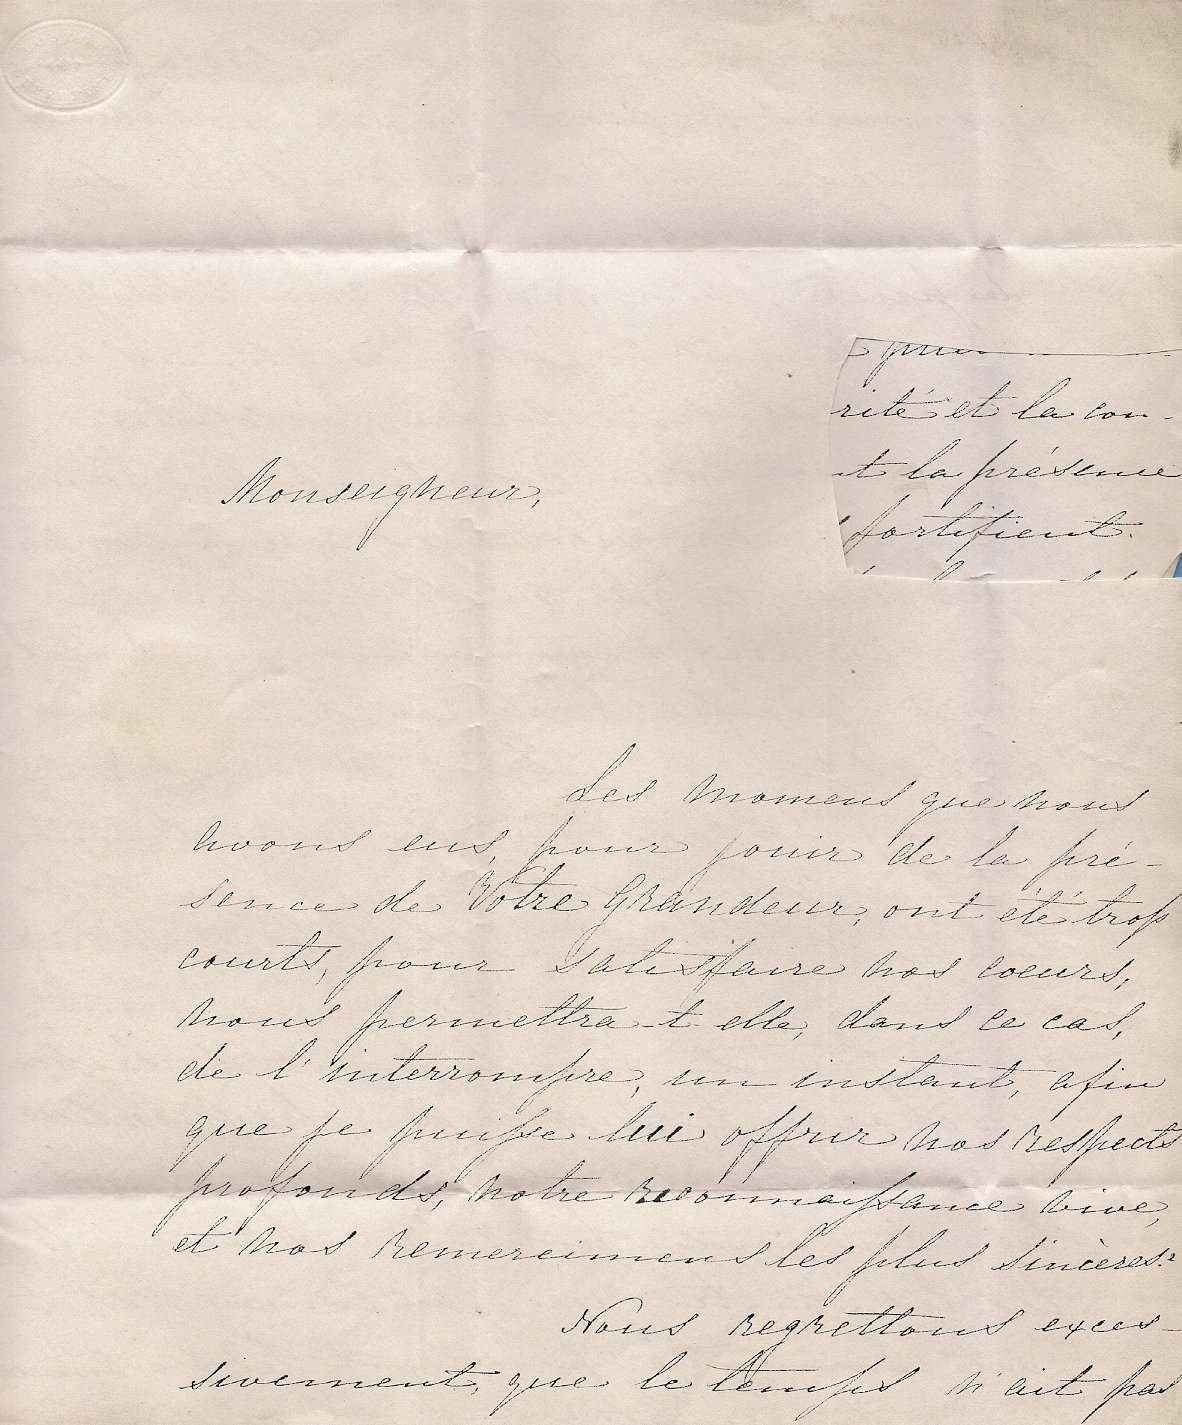 rité et la con-
t la présence
fortifient.
Monseigneur,
Les momens que nous
avons eus, pour jouir de la pré-
sence de Votre Grandeur, ont été trop
courts, pour satisfaire nos coeurs,
nous permettra-t-elle, dans ce cas,
de l'interrompre, un instant, afin
que je puisse lui offrir nos respects
profonds, notre reconnaissance vive,
et nos remercimens les plus sincères?
Nous regrettons exces-
sivement, que le temps n'ait pas